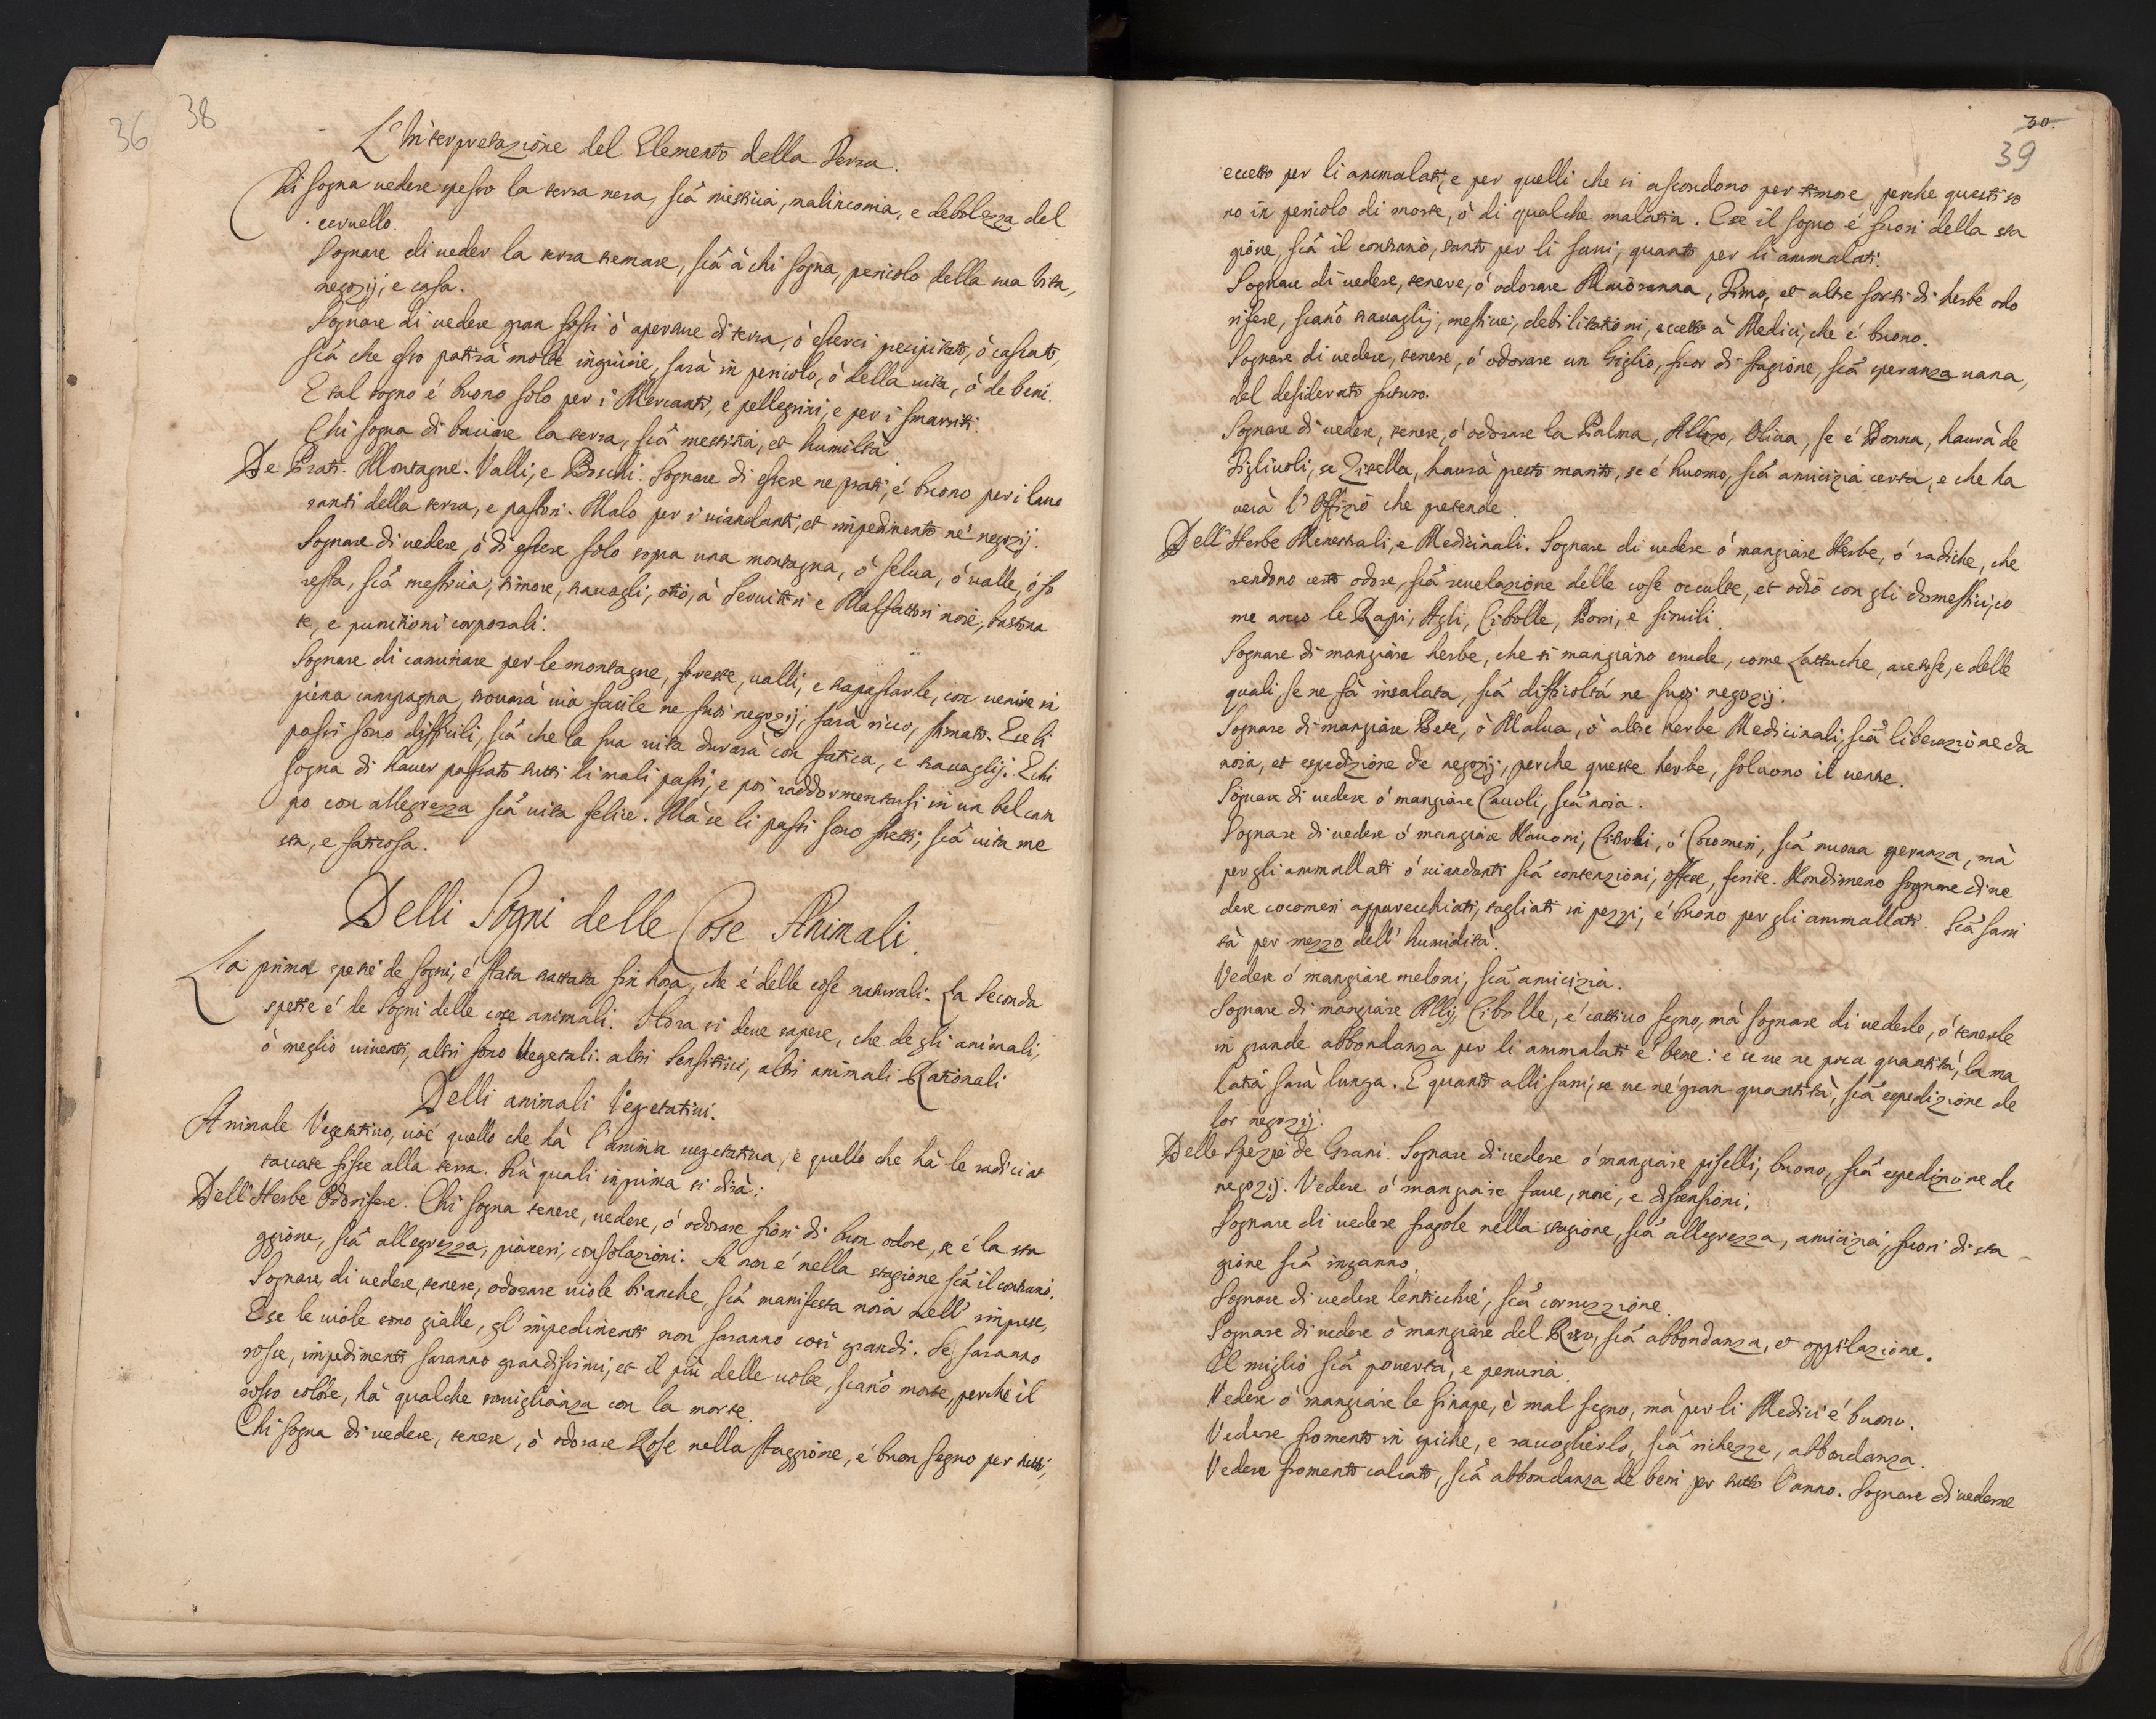 36
38
L'Interpretazione del Elemento della Terra.
Chi sogna uedere spesso la terra nera, scia mesticia, malinconia, e debbolezza del
ceruello.
Sognare di ueder la terra tremare, scia à chi sogna, pericolo della sua vita,
negozij, e casa.
Sognare di uedere gran fossi ò aperture di terra, ò esserci precipitato, ò cascato,
scia che esso patirà molte ingiurie, sarà in pericolo, ò della uita, ò de beni.
E tal sogno é buono solo per i Mercanti, e pellegrini, e per i smarriti.
Chi sogna di baciare la terra, scia mestitia, et humiltà.
De Prati. Montagne. Valli, e Boschi. Sognare di essere ne prati, é buono per i lauo
ranti della terra, e pastori. Malo per i uiandanti, et impedimento ne' negozij.
Sognare di uedere, ò di essere solo sopra una montagna, ò selua, ò ualle, ò fo
resta, scia mesticia, timore, trauagli, otio, à Seruitori e Malfattori noie, bastona
te, e punitioni corporali.
Sognare di caminare per le montagne, foreste, ualli, e trapassarle, con uenire in
piena campagna, trouarà uia facile ne suoi negozij, sarà ricco, stimato. E se li
passi sono difficili, scia che la sua uita durarà con fatica, e trauaglij. E chi
sogna di hauer passato tutti li mali passi, e poi raddormentarsi in un bel cam
po con allegrezza scia uita felice. Mà se li passi sono stretti, scia uita me
sta, e faticosa.
Delli Sogni delle Cose Animali.
La prima spetie de sogni, é stata trattata fin hora, che é delle cose naturali. La Seconda
spetie é de Sogni delle cose animali. Hora si deue sapere, che de gli animali,
ò meglio uiuenti, altri sono Vegetali. altri Sensitiui, altri animali Rationali
Delli animali Vegetatiui.
Animale Vegetatiuo, cioé quello che hà l'anima uegetatiua, e quello che hà le radici at
taccate fisse alla terra. Frà quali in prima si dirà:
Dell'Herbe Odorifere. Chi sogna tenere, uedere, ó odorare fiori di buon odore, se é la sta
ggione, scia allegrezza, piaceri, consolazioni. Se non é nella stagione scia il contrario.
Sognare, di uedere, tenere, odorare uiole bianche, scia manifesta noia nell'imprese,
E se le uiole sono gialle, gl'impedimenti non saranno così grandi. Se saranno
rosse, impedimenti saranno grandissimi, et il più delle uolte, sciano morte, perche il
rosso colore, hà qualche somiglianza con la morte.
Chi sogna di uedere, tenere, ò odorare Rose nella staggione, é buon segno per tutti,
30.
39
eccetto per li ammalati, e per quelli che si ascondono per timore, perche questi so
no in pericolo di morte, ò di qualche malatia. E se il sogno é fuori della sta
gione, scia il contrario, tanto per li sani, quanto per li ammalati.
Sognare di uedere, tenere, ò odorare Maioranna, Timo, et altre sorti di herbe odo
rifere, sciano trauaglij, mesticie, debilitationi, eccetto à Medici, che é buono.
Sognare di uedere, tenere, ó odorare un Giglio, fuor di stagione, scia speranza uana,
del desiderato futuro.
Sognare di uedere, tenere, ó odorare la Palma, Alloro, Oliua, se é Donna, haurà de
Figliuoli, se Zitella, haurà presto marito, se é huomo, scia amicizia certa, e che ha
uerà l'Offizio che pretende.
Dell'Herbe Menestrali, e Medicinali. Sognare di uedere ó mangiare Herbe, ó radiche, che
rendono certo odore, scia reuelazione delle cose occulte, et odio con gli domestici, co
me anco le Rapi, Agli, Cibolle, Porri, e simili.
Sognare di mangiare herbe, che si mangiano crude, come Lattuche, acetose, e delle
quali se ne fà insalata, scia difficoltá ne suoi negozij.
Sognare di mangiare Bete, ò Malua, ò altre herbe Medicinali, scia liberazione da
noia, et espedizione de negozij, perche queste herbe, soluono il uentre.
Sognare di uedere ó mangiare Cauoli, scia noia.
Sognare di uedere ó mangiare Nauoni, Citroli, ó Cocomeri, scia nuoua speranza, mà
per gli ammallati ó uiandanti scia contenzioni, offese, ferite. Nondimeno sognare di ue
dere cocomeri apparecchiati, tagliati in pezzi, é buono per gli ammallati. Scia sani
tà per mezzo dell'humidità.
Vedere ó mangiare meloni, scia amicizia.
Sognare di mangiare Allij, Cibolle, é cattiuo segno, mà sognare di uederle, ó tenerle
in grande abbondanza per li ammalati é bene: e se ue ne poca quantità, la ma
latia sarà lunga. E quanto alli sani, se ue né gran quantità, scia espedizione de
lor negozij.
Delle Spezie de Grani. Sognare di uedere ó mangiare piselli, buono, scia espedizione de
negozij. Vedere ó mangiare faue, noie, e dissensioni.
Sognare di uedere fragole nella stagione, scia allegrezza, amicizia, fuori di sta
gione scia inganno.
Sognare di uedere lenticchie, scia corruzzione.
Sognare di uedere ò mangiare del Riso, scia abbondanza, et oppilazione.
Il miglio scia pouertà, e penuria.
Vedere ò mangiare le sinape, è mal segno, mà per li Medici é buono.
Vedere fromento in spiche, e raccoglierlo, scia richezze, abbondanza.
Vedere fromento calcato, scia abbondanza de beni per tutto l'anno. Sognare di uederne